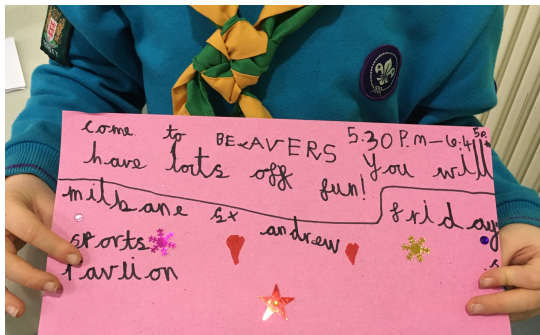 come to BEAVERS 5.30 P.m – 6:45p.
have lots off fun! You will
milbane St andrew friday
sports
Pavlion